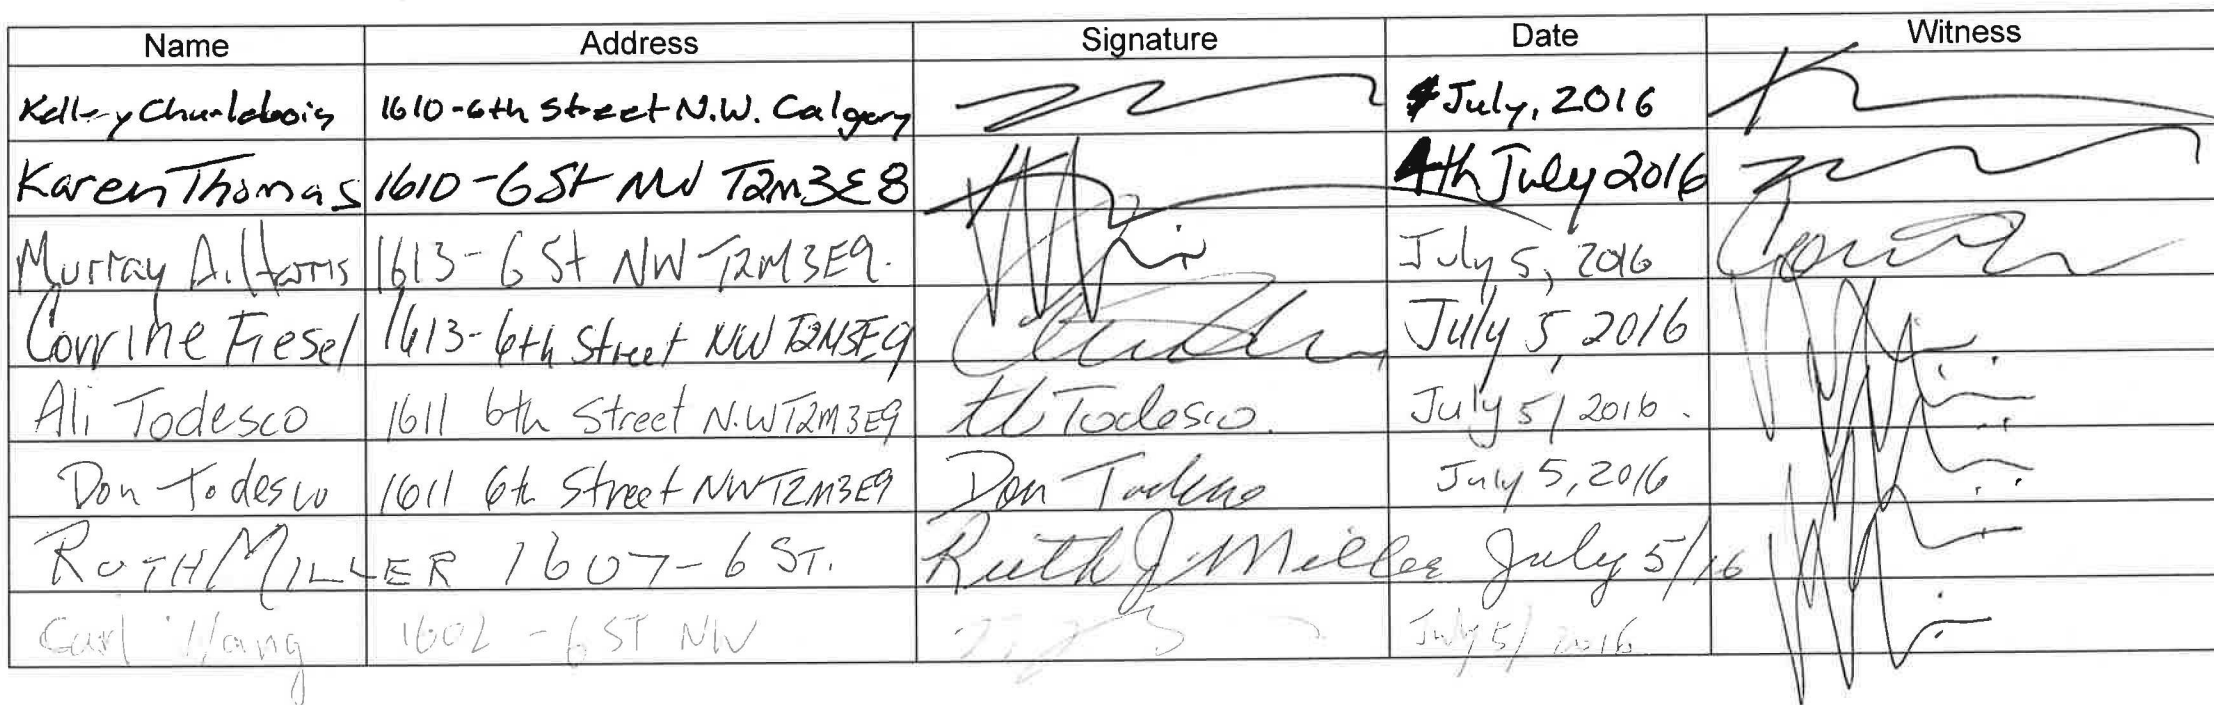 Name Address Signature Date Witness
Kelley Charlebois 1610-6th Street N.W. Calgary 4 July, 2016
Karen Thomas 1610-6 St NW T2M3E8 4th July 2016
Murray A. Harris 1613-6 St NW T2M3E9. July 5, 2016
Corrine Fiesel 1613-6th Street NW T2M3E9 July 5, 2016
Ali Todesco 1611 6th Street N.W T2M3E9 Todesco. July 5/2016.
Don Todesco 1611 6th Street NW T2M3E9 Don Todesco July 5, 2016
RUTH MILLER 1607-6 ST. Ruth J Miller July 5/16
Carl 1602-6 ST NW July 5/2016